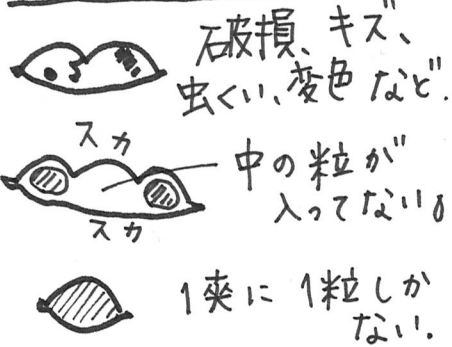 破損、キズ、
虫くい、変色など.
スカ
中の粒が
入ってない。
スカ
1莢に1粒しか
ない.